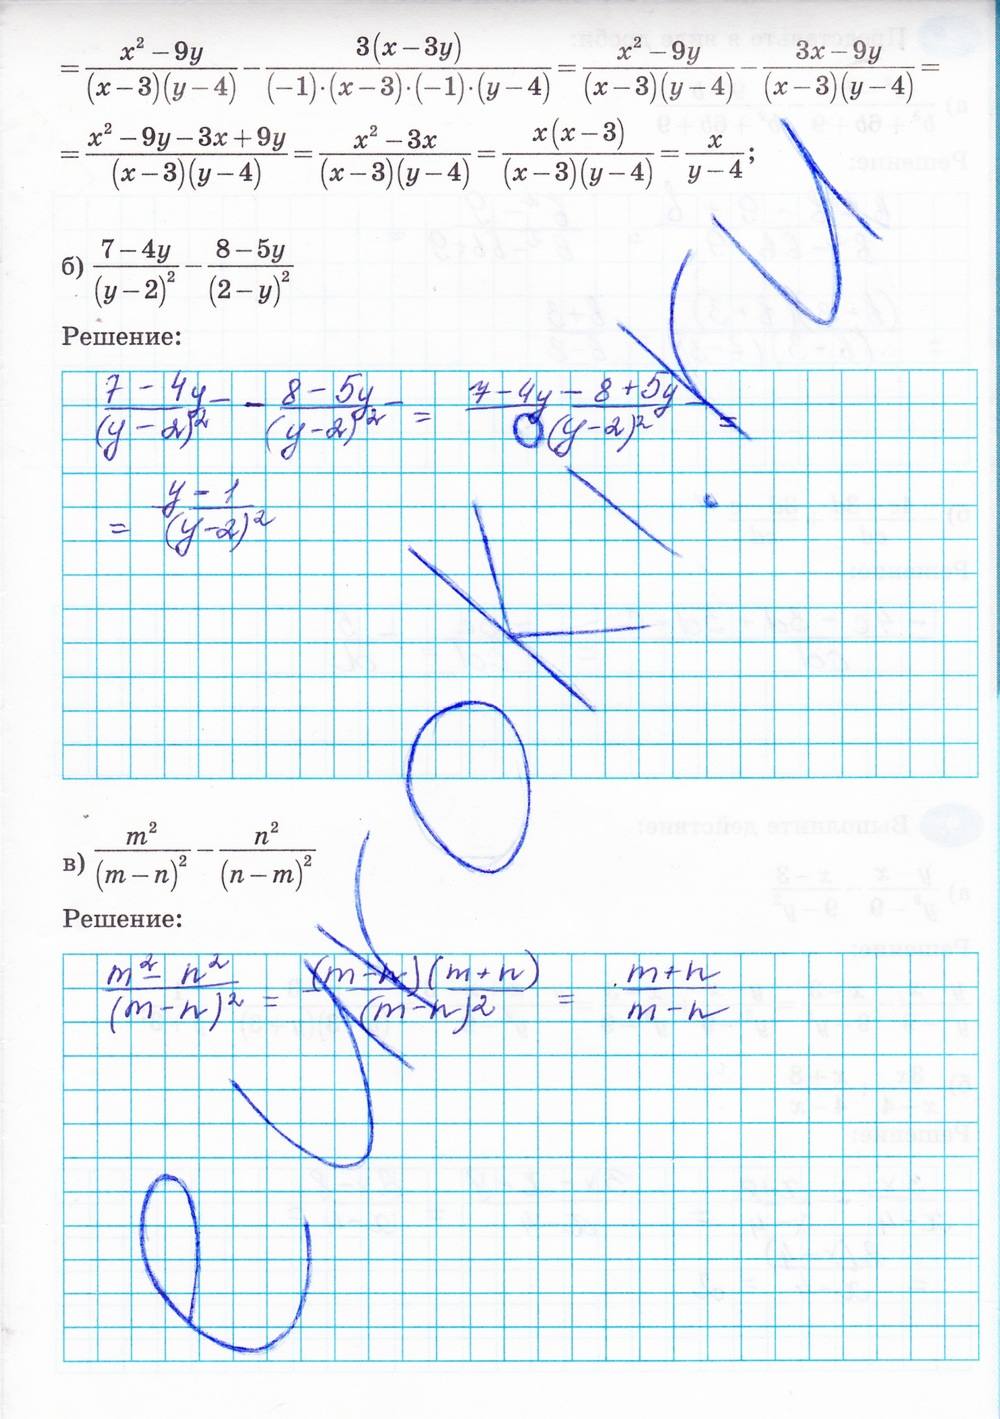 = (x² − 9y)/((x − 3)(y − 4)) − 3(x − 3y)/((−1)·(x − 3)·(−1)·(y − 4)) = (x² − 9y)/((x − 3)(y − 4)) − (3x − 9y)/((x − 3)(y − 4)) =
= (x² − 9y − 3x + 9y)/((x − 3)(y − 4)) = (x² − 3x)/((x − 3)(y − 4)) = x(x − 3)/((x − 3)(y − 4)) = x/(y − 4);
б) (7 − 4y)/(y − 2)² − (8 − 5y)/(2 − y)²
Решение:
(7 − 4y)/(y − 2)² − (8 − 5y)/(y − 2)² = (7 − 4y − 8 + 5y)/(y − 2)² =
= (y − 1)/(y − 2)²
в) m²/(m − n)² − n²/(n − m)²
Решение:
(m² − n²)/(m − n)² = (m − n)(m + n)/(m − n)² = (m + n)/(m − n)